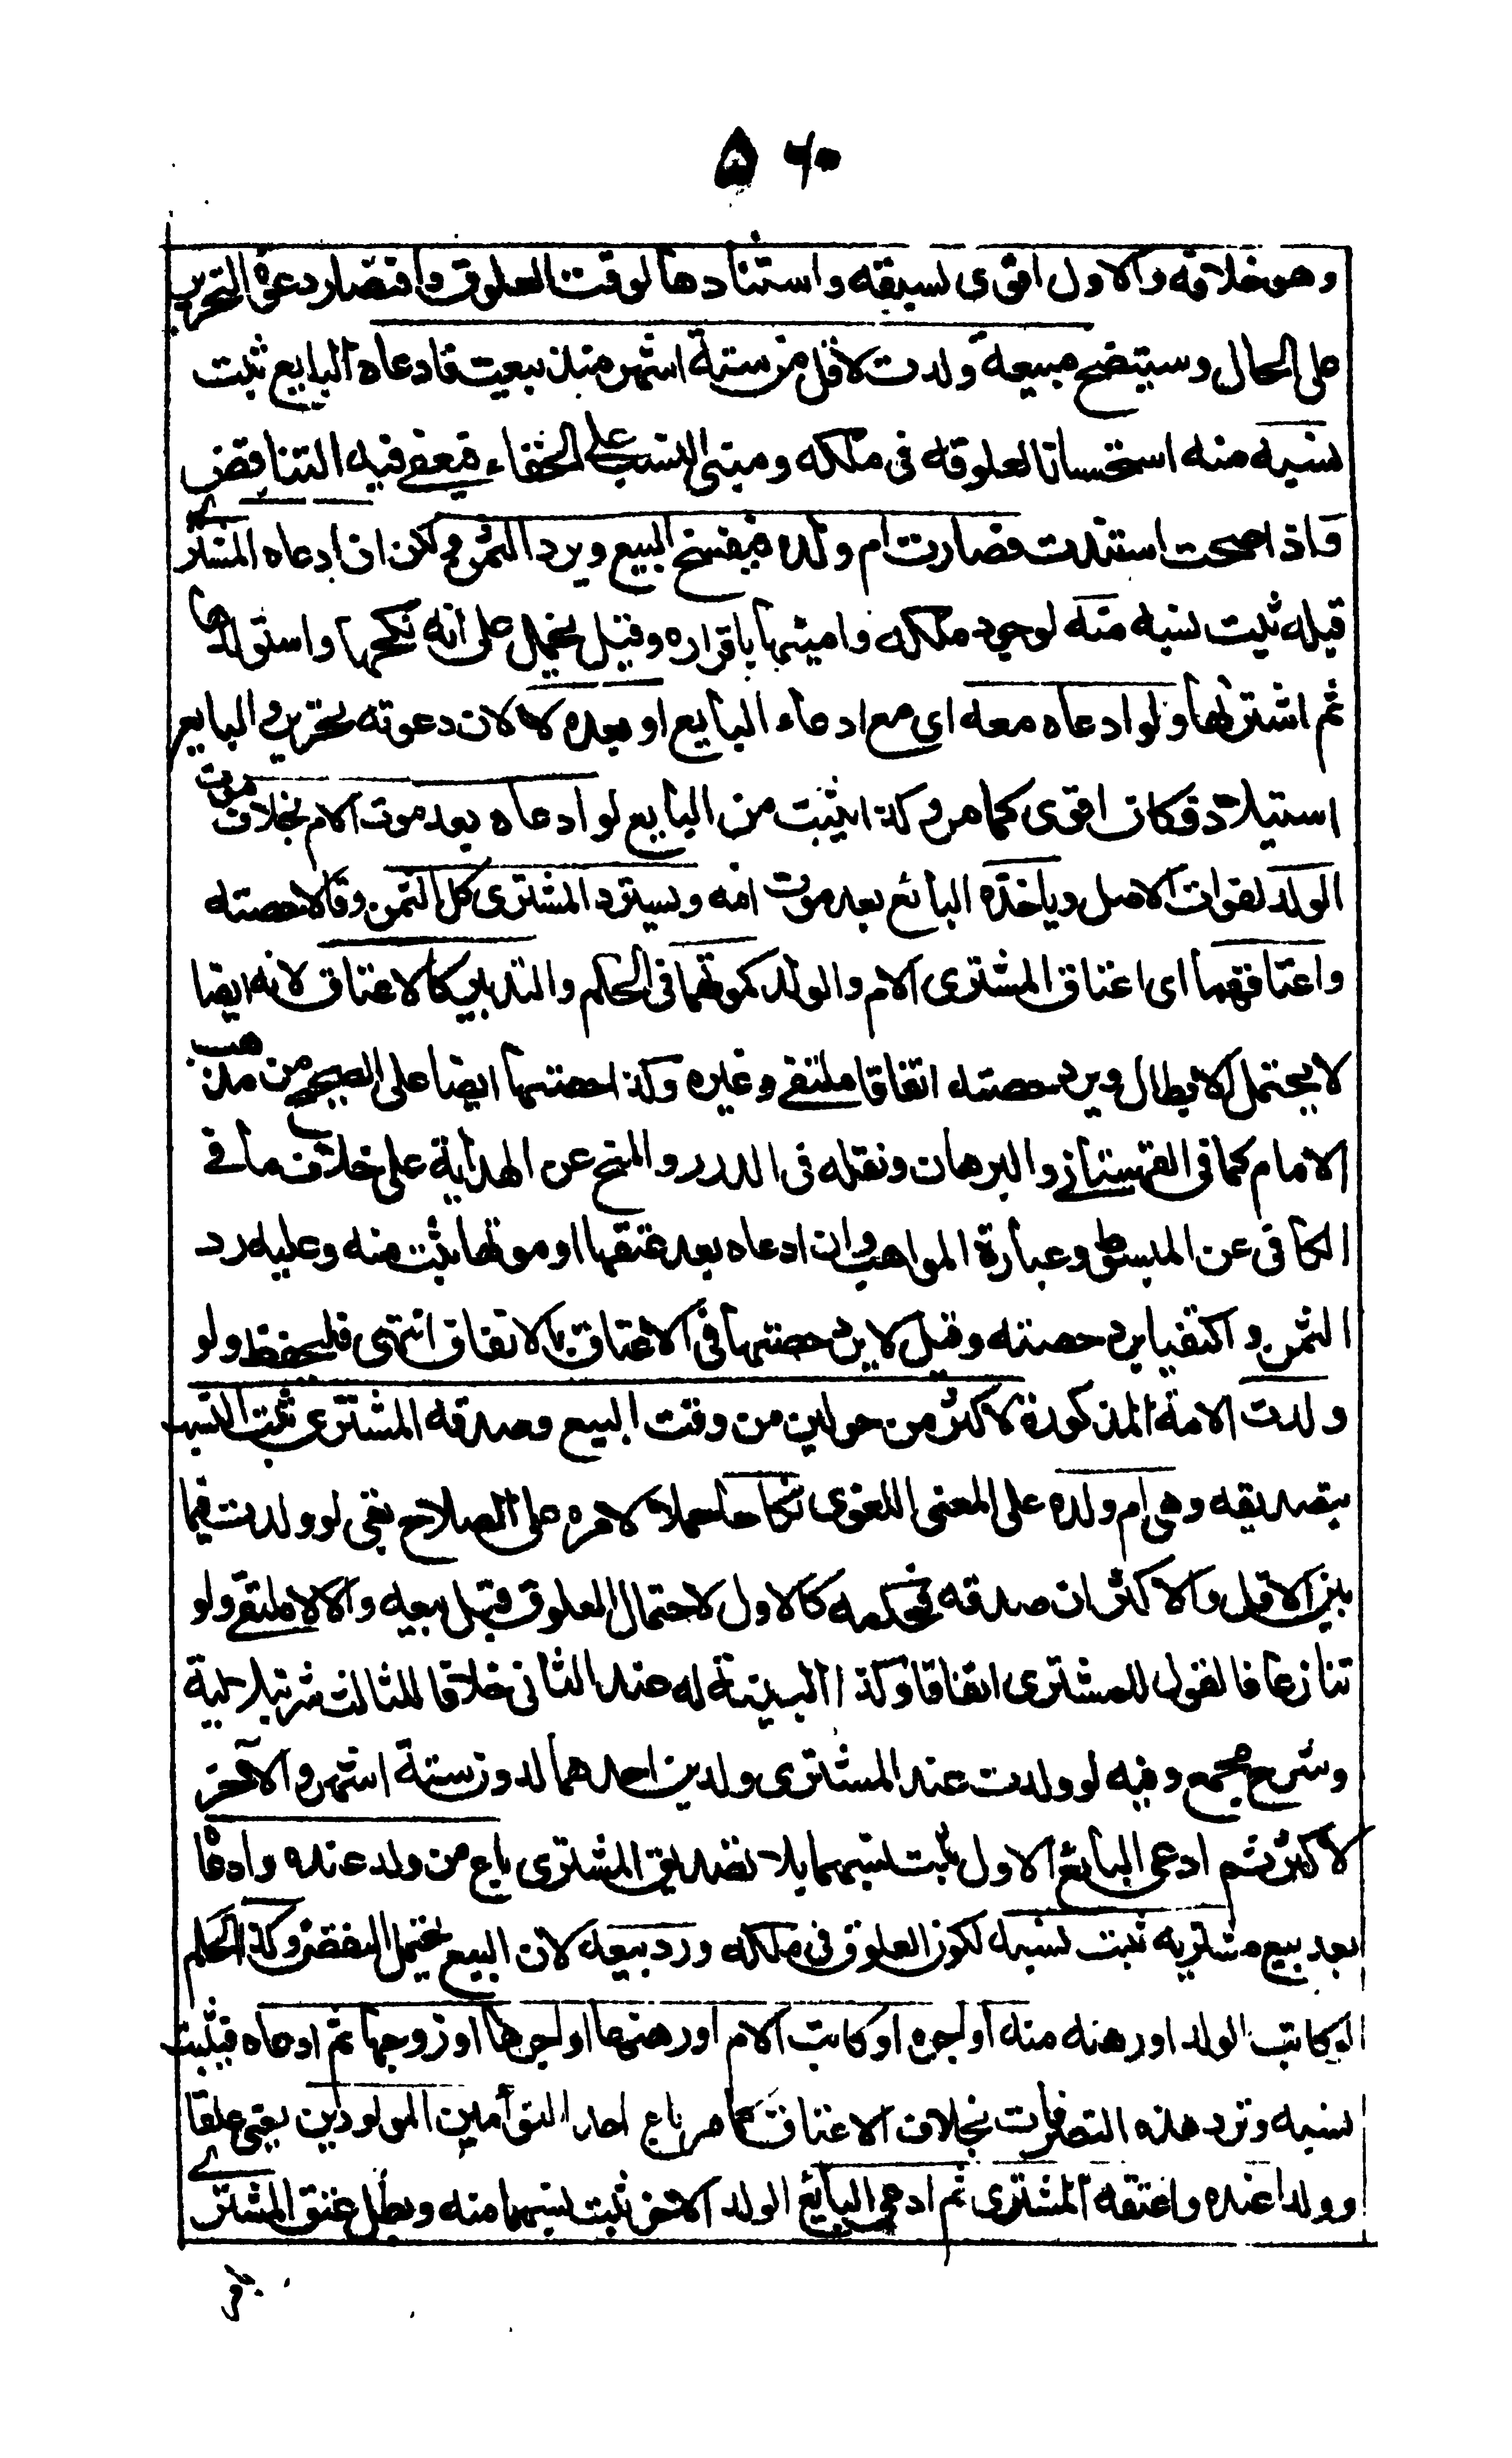 ٥٦٠
وهو خلافه والاول اقوى لسبقه واستنادها لوقت العلوق واقتصار دعوة التحرير
على الحال وسيتضح مبيعة ولدت لاقل من ستة اشهر منذ بيعت فادعاه البايع ثبت
نسبه منه استحسانا لعلوقه فى ملكه ومبنى النسب على الخفاء فيعفى فيه التناقض
واذا صحت استندت فصارت ام ولده فيفسخ البيع ويرد الثمن ولكن ان ادعاه المشترى
قبله ثبت نسبه منه لوجود ملكه واميتها باقراره وقيل يحمل على انه نكحها واستولدها
ثم اشتراها ولو ادعاه معه اى مع ادعاء البايع او بعده لا لان دعوته تحرير والبايع
استيلاد فكان اقوى كما مر وكذا يثبت من البايع لو ادعاه بعد موت الام بخلاف موت
الولد لفوات الاصل وياخذه البائع بعد موت امه ويسترد المشترى كل الثمن وقالا حصته
واعتاقهما اى اعتاق المشترى الام والولد كموتهما فى الحكم والتدبير كالاعتاق لانه ايضا
لا يحتمل الابطال ويرد حصته اتفاقا ملتقى وغيره وكذا حصتها ايضا على الصحيح من مذهب
الامام كما فى القهستانى والبرهان ونقله فى الدرر والمنح عن الهداية على خلاف ما فى
الكافى عن المبسوط وعبارة المواهب وان ادعاه بعد عتقها او موتها ثبت منه وعليه رد
الثمن واكتفيا برد حصته وقيل لا يرد حصتها فى الاعتاق بالاتفاق انتهى فليحفظ ولو
ولدت الامة المذكورة لاكثر من حولين من وقت البيع وصدقه المشترى ثبت النسب
بتصديقه وهى ام ولده على المعنى اللغوى نكاحا حملا لامره على الصلاح بقى لو ولدت فيما
بين الاقل والاكثر ان صدقه فحكمه كالاول لاحتمال العلوق قبل بيعه والا لا ملتقى ولو
تنازعا فالقول للمشترى اتفاقا وكذا البينة له عند الثانى خلافا للثالث شرنبلالية
وشرح مجمع وفيه لو ولدت عند المشترى ولدين احدهما لدون ستة اشهر والآخر
لاكثر ثم ادعى البائع الاول ثبت نسبهما بلا تصديق المشترى باع من ولد عنده وادعاه
بعد بيع مشتريه ثبت نسبه لكون العلوق فى ملكه ورد بيعه لان البيع يحتمل النقض وكذا الحكم
لو كاتب الولد او رهنه منه او اجره او كاتب الام او رهنها او اجرها او زوجها ثم ادعاه فيثبت
نسبه وترد هذه التصرفات بخلاف الاعتاق كما مر باع احد التوأمين المولودين يعنى علقا
وولدا عنده واعتقه المشترى ثم ادعى البائع الولد الآخر ثبت نسبهما منه وبطل عتق المشترى